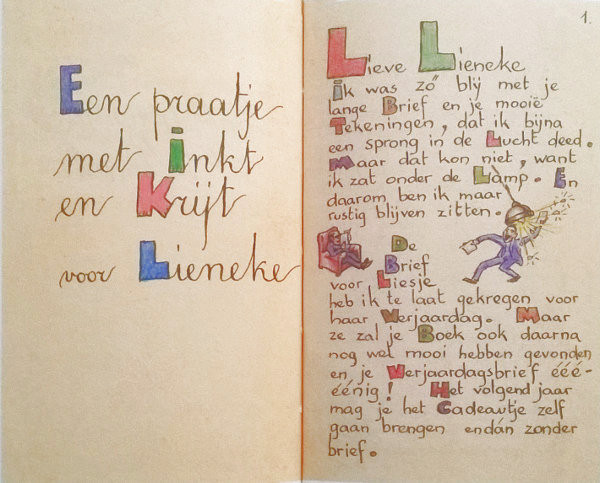 Een praatje
met inkt
en Krijt
voor Lieneke
1.
Lieve Lieneke
ik was zó blij met je
lange Brief en je mooie
Tekeningen, dat ik bijna
een sprong in de Lucht deed.
Maar dat kon niet, want
ik zat onder de Lamp. En
daarom ben ik maar
rustig blijven zitten.
De
Brief
voor Liesje
heb ik te laat gekregen voor
haar Verjaardag. Maar
ze zal je Boek ook daarna
nog wel mooi hebben gevonden
en je Verjaardagsbrief ééé-
éénig! Het volgend jaar
mag je het Cadeautje zelf
gaan brengen endán zonder
brief.